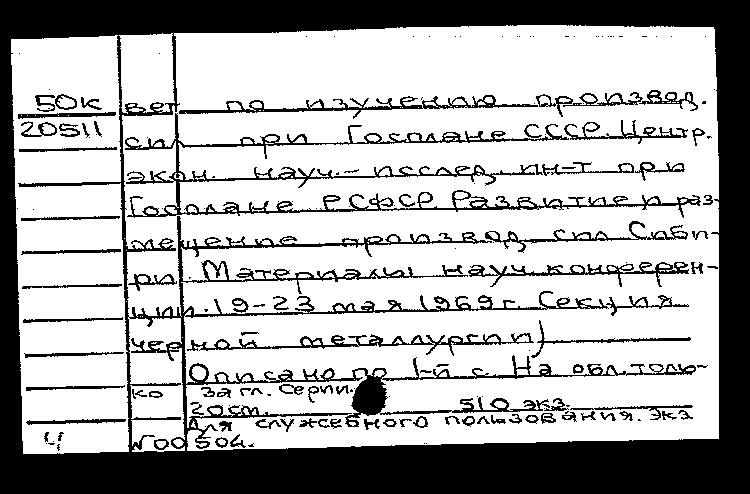 50к вет по изучению производ.
20511 сил при Госплане СССР. Центр.
экон. науч.-исслед. ин-т при
Госплане РСФСР Развитие и раз-
мещение производ. сил Сиби-
ри. Материалы науч. конферен-
ции. 19-23 мая 1969 г. Секция
черной металлургии)
Описано по 1-й с. На обл. толь-
ко загл. серии.
20 ст. 510 экз.
Для служебного пользования. Экз
4 №00504.